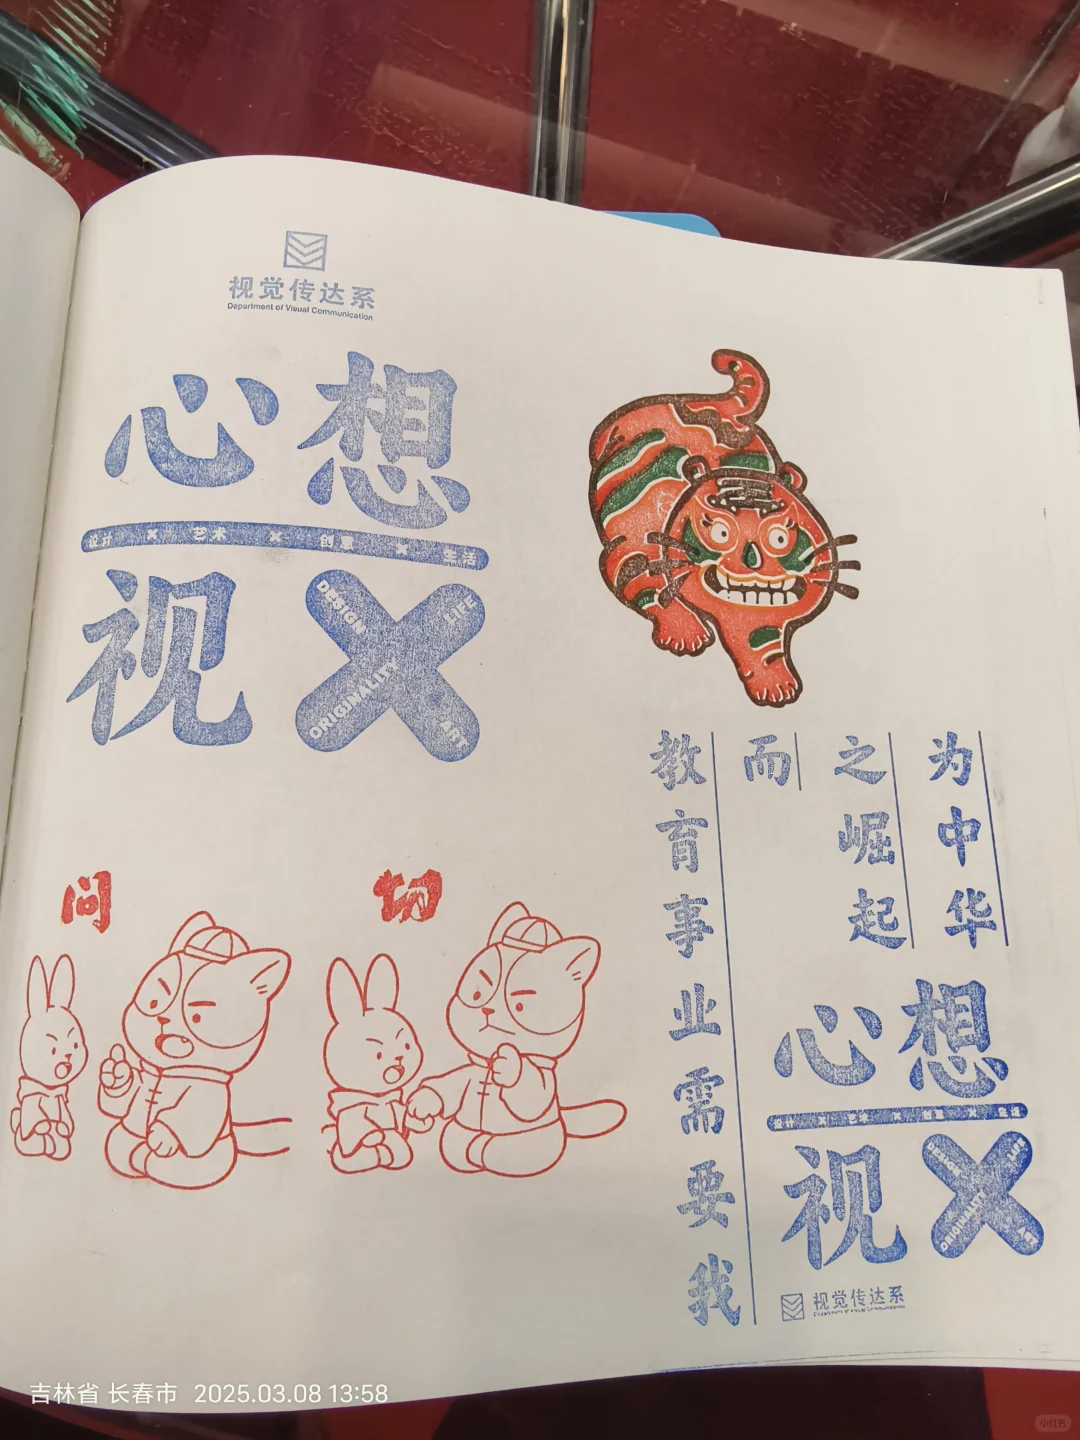 视觉传达系
Department of Visual Communication
心想
设计 × 艺术 × 创意 × 生活
视
DESIGN
LIFE
ORIGINALITY
ART
问
切
为中华
之崛起
而
教育事业需要我
心想
设计 × 艺术 × 创意 × 生活
视
DESIGN
LIFE
ORIGINALITY
ART
视觉传达系
Department of Visual Communication
吉林省 长春市 2025.03.08 13:58
小红书